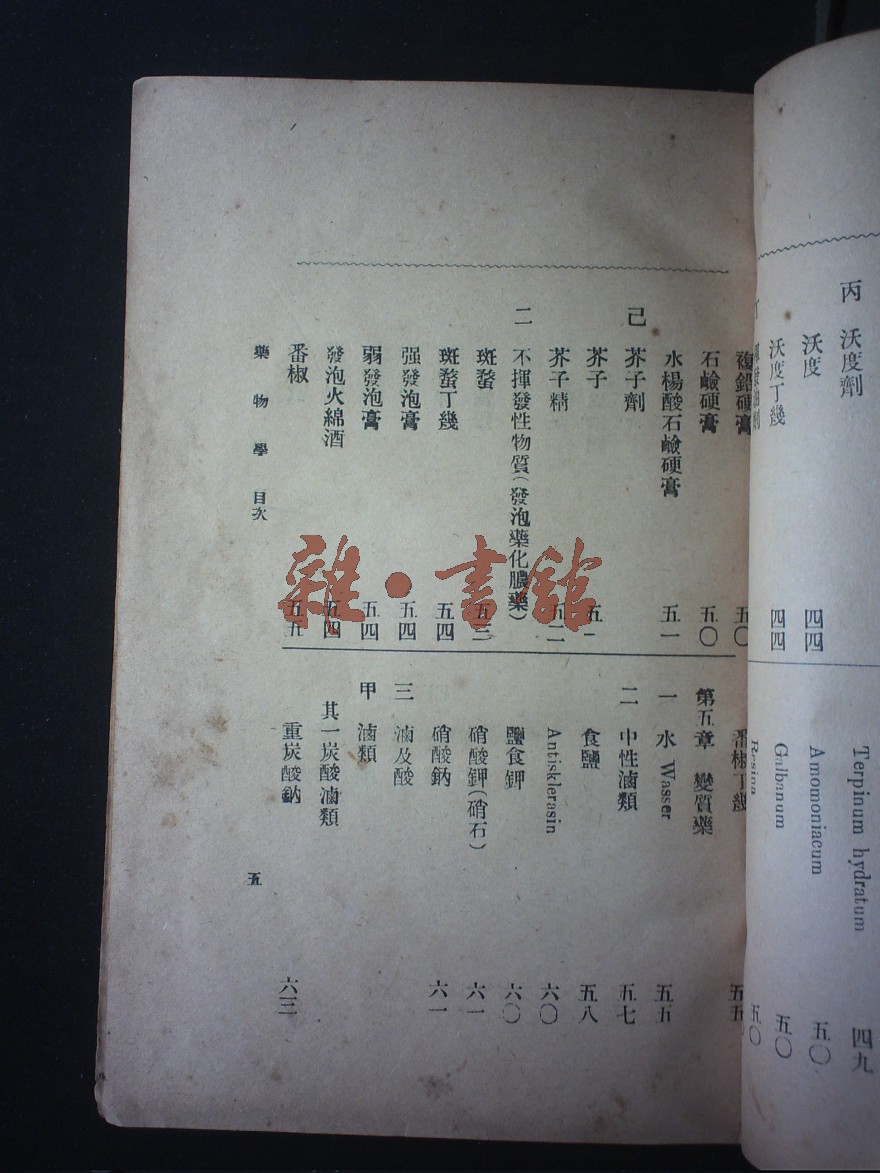 丙 沃度劑
沃度 四四
沃度丁幾 四四
Terpinum hydratum 四九
Amomoniacum 五〇
Galbanum 五〇
Resina 五〇
複鉛硬膏 五〇
石鹼硬膏 五〇
水楊酸石鹼硬膏 五一
己 芥子劑
芥子 五一
芥子精
二 不揮發性物質(發泡藥化膿藥)
斑蝥 五三
斑蝥丁幾 五四
强發泡膏 五四
弱發泡膏 五四
發泡火綿酒 五四
番椒 五五
番椒丁幾 五五
第五章 變質藥
一 水 Wasser 五五
二 中性滷類 五七
食鹽 五八
Antisklerasin 六〇
鹽食鉀 六〇
硝酸鉀(硝石) 六一
硝酸鈉 六一
三 滷及酸
甲 滷類
其一炭酸滷類
重炭酸鈉 六三
藥物學 目次
五
雜·書館